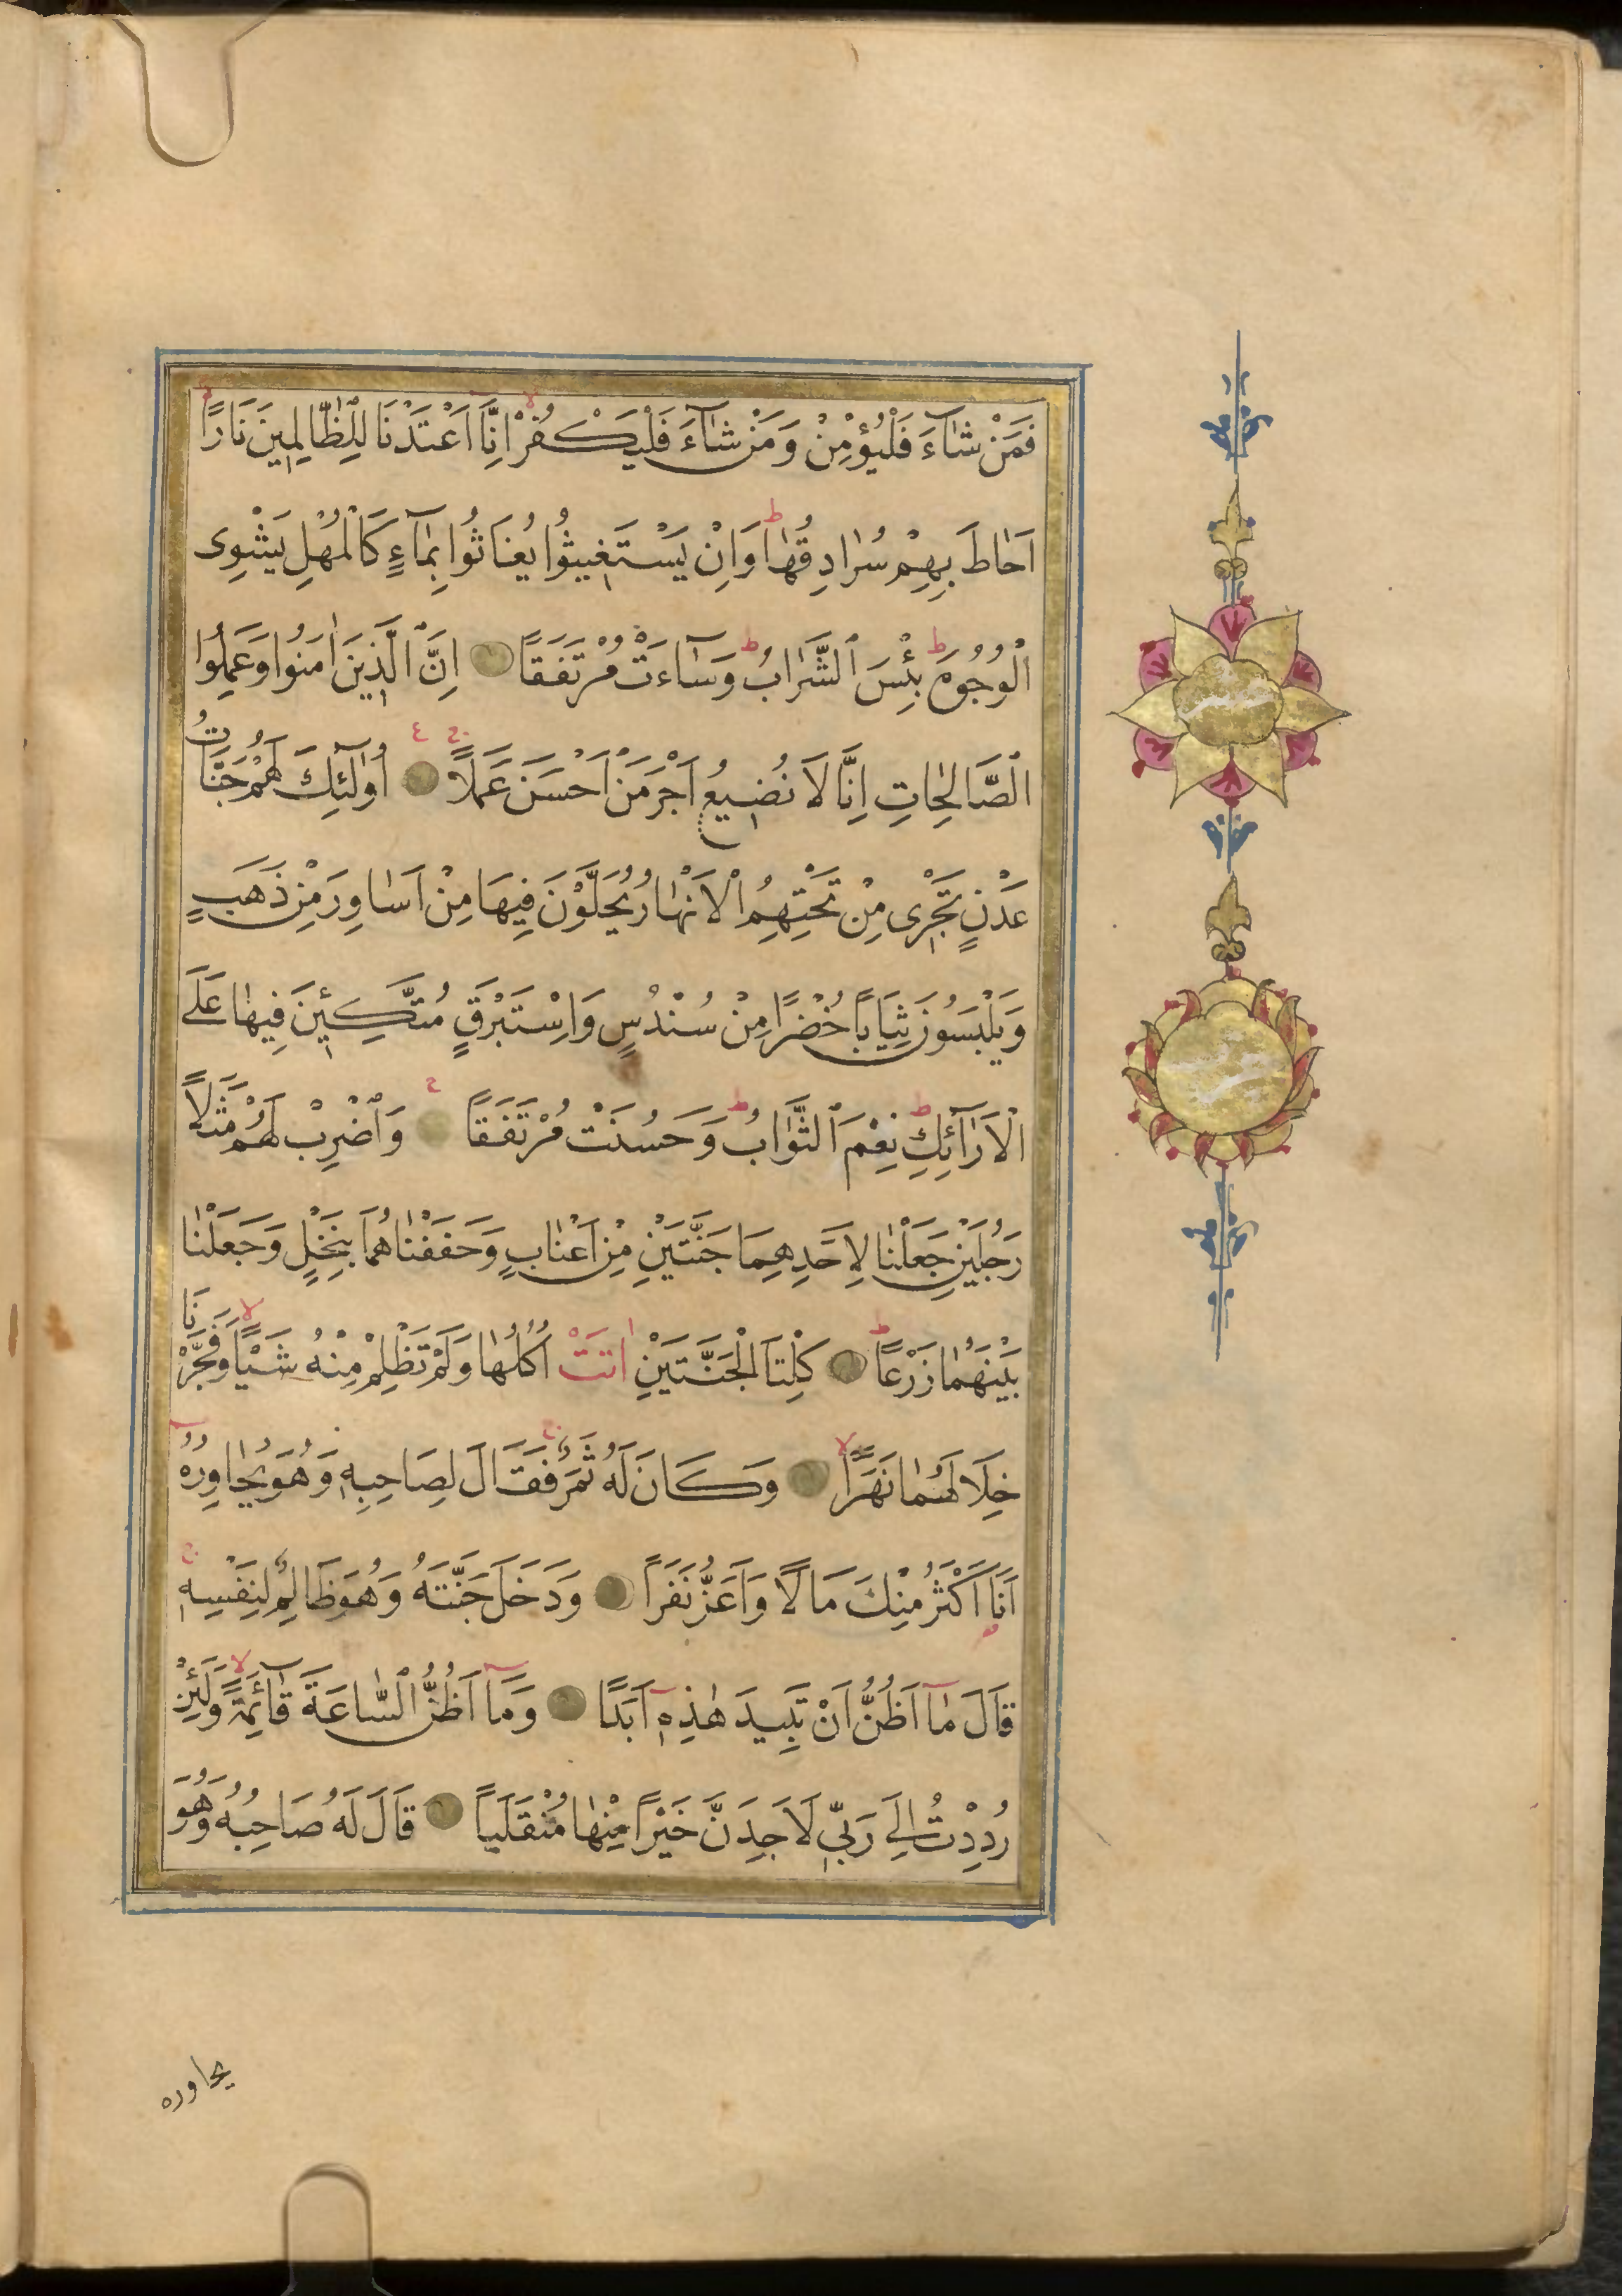 فَمَنْ شَاۤءَ فَلْيُؤْمِنْ وَمَنْ شَاۤءَ فَلْيَكْفُرْ اِنَّاۤ اَعْتَدْنَا لِلظَّالِمِينَ نَارًا
اَحَاطَ بِهِمْ سُرَادِقُهَا وَاِنْ يَسْتَغِيثُوا يُغَاثُوا بِمَاۤءٍ كَالْمُهْلِ يَشْوِى
الْوُجُوهَ بِئْسَ الشَّرَابُ وَسَاۤءَتْ مُرْتَفَقًا اِنَّ الَّذِينَ اٰمَنُوا وَعَمِلُوا
الصَّالِحَاتِ اِنَّا لَا نُضِيعُ اَجْرَ مَنْ اَحْسَنَ عَمَلًا اُولٰۤئِكَ لَهُمْ جَنَّاتُ
عَدْنٍ تَجْرِى مِنْ تَحْتِهِمُ الْاَنْهَارُ يُحَلَّوْنَ فِيهَا مِنْ اَسَاوِرَ مِنْ ذَهَبٍ
وَيَلْبَسُونَ ثِيَابًا خُضْرًا مِنْ سُنْدُسٍ وَاِسْتَبْرَقٍ مُتَّكِـِٔينَ فِيهَا عَلَى
الْاَرَاۤئِكِ نِعْمَ الثَّوَابُ وَحَسُنَتْ مُرْتَفَقًا وَاضْرِبْ لَهُمْ مَثَلًا
رَجُلَيْنِ جَعَلْنَا لِاَحَدِهِمَا جَنَّتَيْنِ مِنْ اَعْنَابٍ وَحَفَفْنَاهُمَا بِنَخْلٍ وَجَعَلْنَا
بَيْنَهُمَا زَرْعًا كِلْتَا الْجَنَّتَيْنِ اٰتَتْ اُكُلَهَا وَلَمْ تَظْلِمْ مِنْهُ شَيْـًٔا وَفَجَّرْنَا
خِلَالَهُمَا نَهَرًا وَكَانَ لَهُ ثَمَرٌ فَقَالَ لِصَاحِبِهِ وَهُوَ يُحَاوِرُهُ
اَنَا اَكْثَرُ مِنْكَ مَالًا وَاَعَزُّ نَفَرًا وَدَخَلَ جَنَّتَهُ وَهُوَ ظَالِمٌ لِنَفْسِهِ
قَالَ مَاۤ اَظُنُّ اَنْ تَبِيدَ هٰذِهِ اَبَدًا وَمَاۤ اَظُنُّ السَّاعَةَ قَاۤئِمَةً وَلَئِنْ
رُدِدْتُ اِلَى رَبِّى لَاَجِدَنَّ خَيْرًا مِنْهَا مُنْقَلَبًا قَالَ لَهُ صَاحِبُهُ وَهُوَ
يحاوره